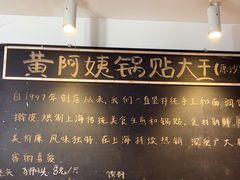 黄阿姨锅贴大王(原沙
自1997年创店以来,我们一直坚持纯手工和面,调馅
擀皮,烘制上海传统美食生煎和锅贴,食材新鲜,
美价廉,风味独特,在上海持续热销,深受广大
客的喜爱
8元/